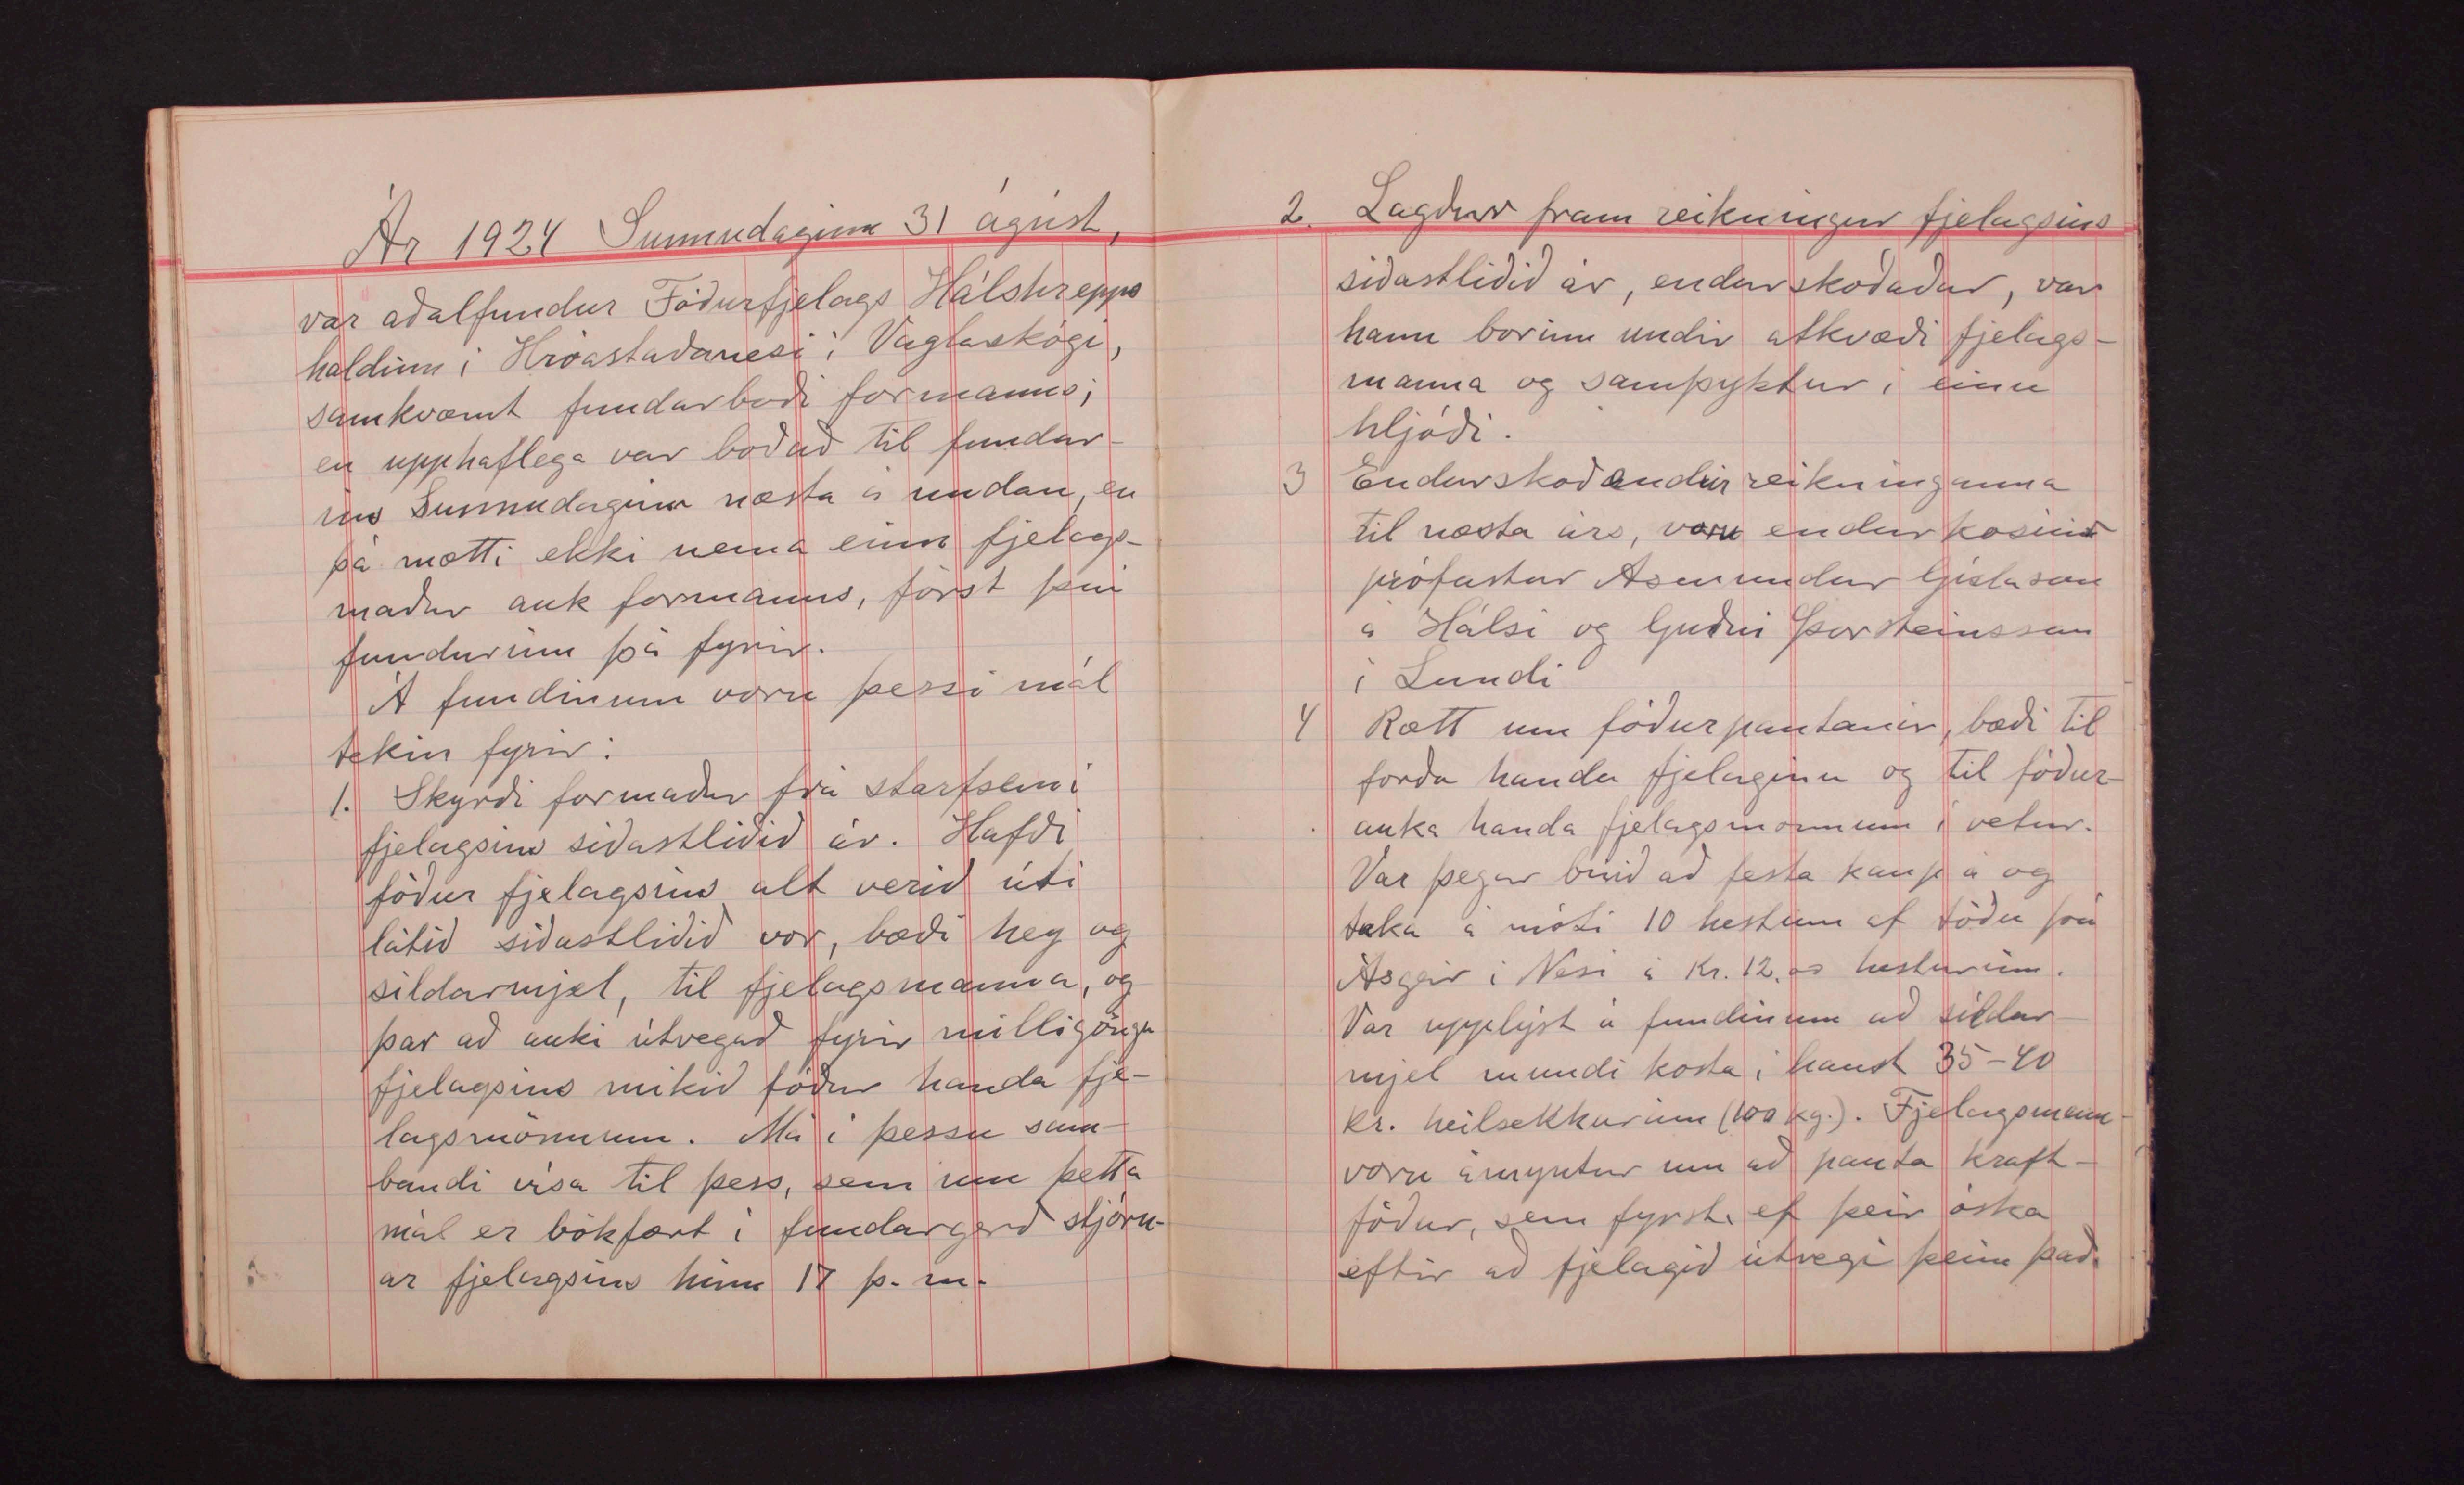 Ár 1924 Sunnudaginn 31 ágúst,
var aðalfundur Fóðurfjelags Hálshrepps
haldinn í Hróastaðanesi í Vaglaskógi,
samkvæmt fundarboði formanns;
en upphaflega var boðað til fundar-
ins Sunnudaginn næsta á undan, en
þá mætti ekki nema einn fjelags-
maður auk formanns, fórst því
fundurinn þá fyrir.
Á fundinum voru þessi mál
tekin fyrir:
1. Skyrði formaður frá starfsemi
fjelagsins síðastliðið ár. Hafði
fóður fjelagsins alt verið úti
látið síðastliðið vor, bæði hey og
síldarmjel, til fjelagsmanna, og
þar að auki útvegað fyrir milligöngu
fjelagsins mikið fóður handa fje-
lagsmönnum. Má í þessu sam-
bandi vísa til þess, sem um þetta
mál er bókfært í fundargerð stjórn-
ar fjelagsins hinn 17 þ. m.
2. Lagður fram reikningur fjelagsins
síðastliðið ár, endurskoðaður, var
hann borinn undir atkvæði fjelags-
manna og samþyktur í einu
hljóði.
3 Endurskoðendur reikninganna
til næsta árs, voru endurkosnir
prófastur Asmundur Gíslason
á Hálsi og Guðni Þorsteinsson
í Lundi
4 Rætt um fóðurpantanir, bæði til
forða handa fjelaginu og til fóður-
auka handa fjelagsmönnum í vetur.
Var þegar búið að festa kaup á og
taka á móti 10 hestum af töðu frá
Ásgeir í Nesi á Kr. 12.00 hesturinn.
Var upplýst á fundinum að síldar-
mjel mundi kosta í haust 35-40
kr. heilsekkurinn (100 kg.). Fjelagsmenn
voru ámyntur um að panta kraft-
fóður, sem fyrst, ef þeir óska
eftir að fjelagið útvegi þeim það.